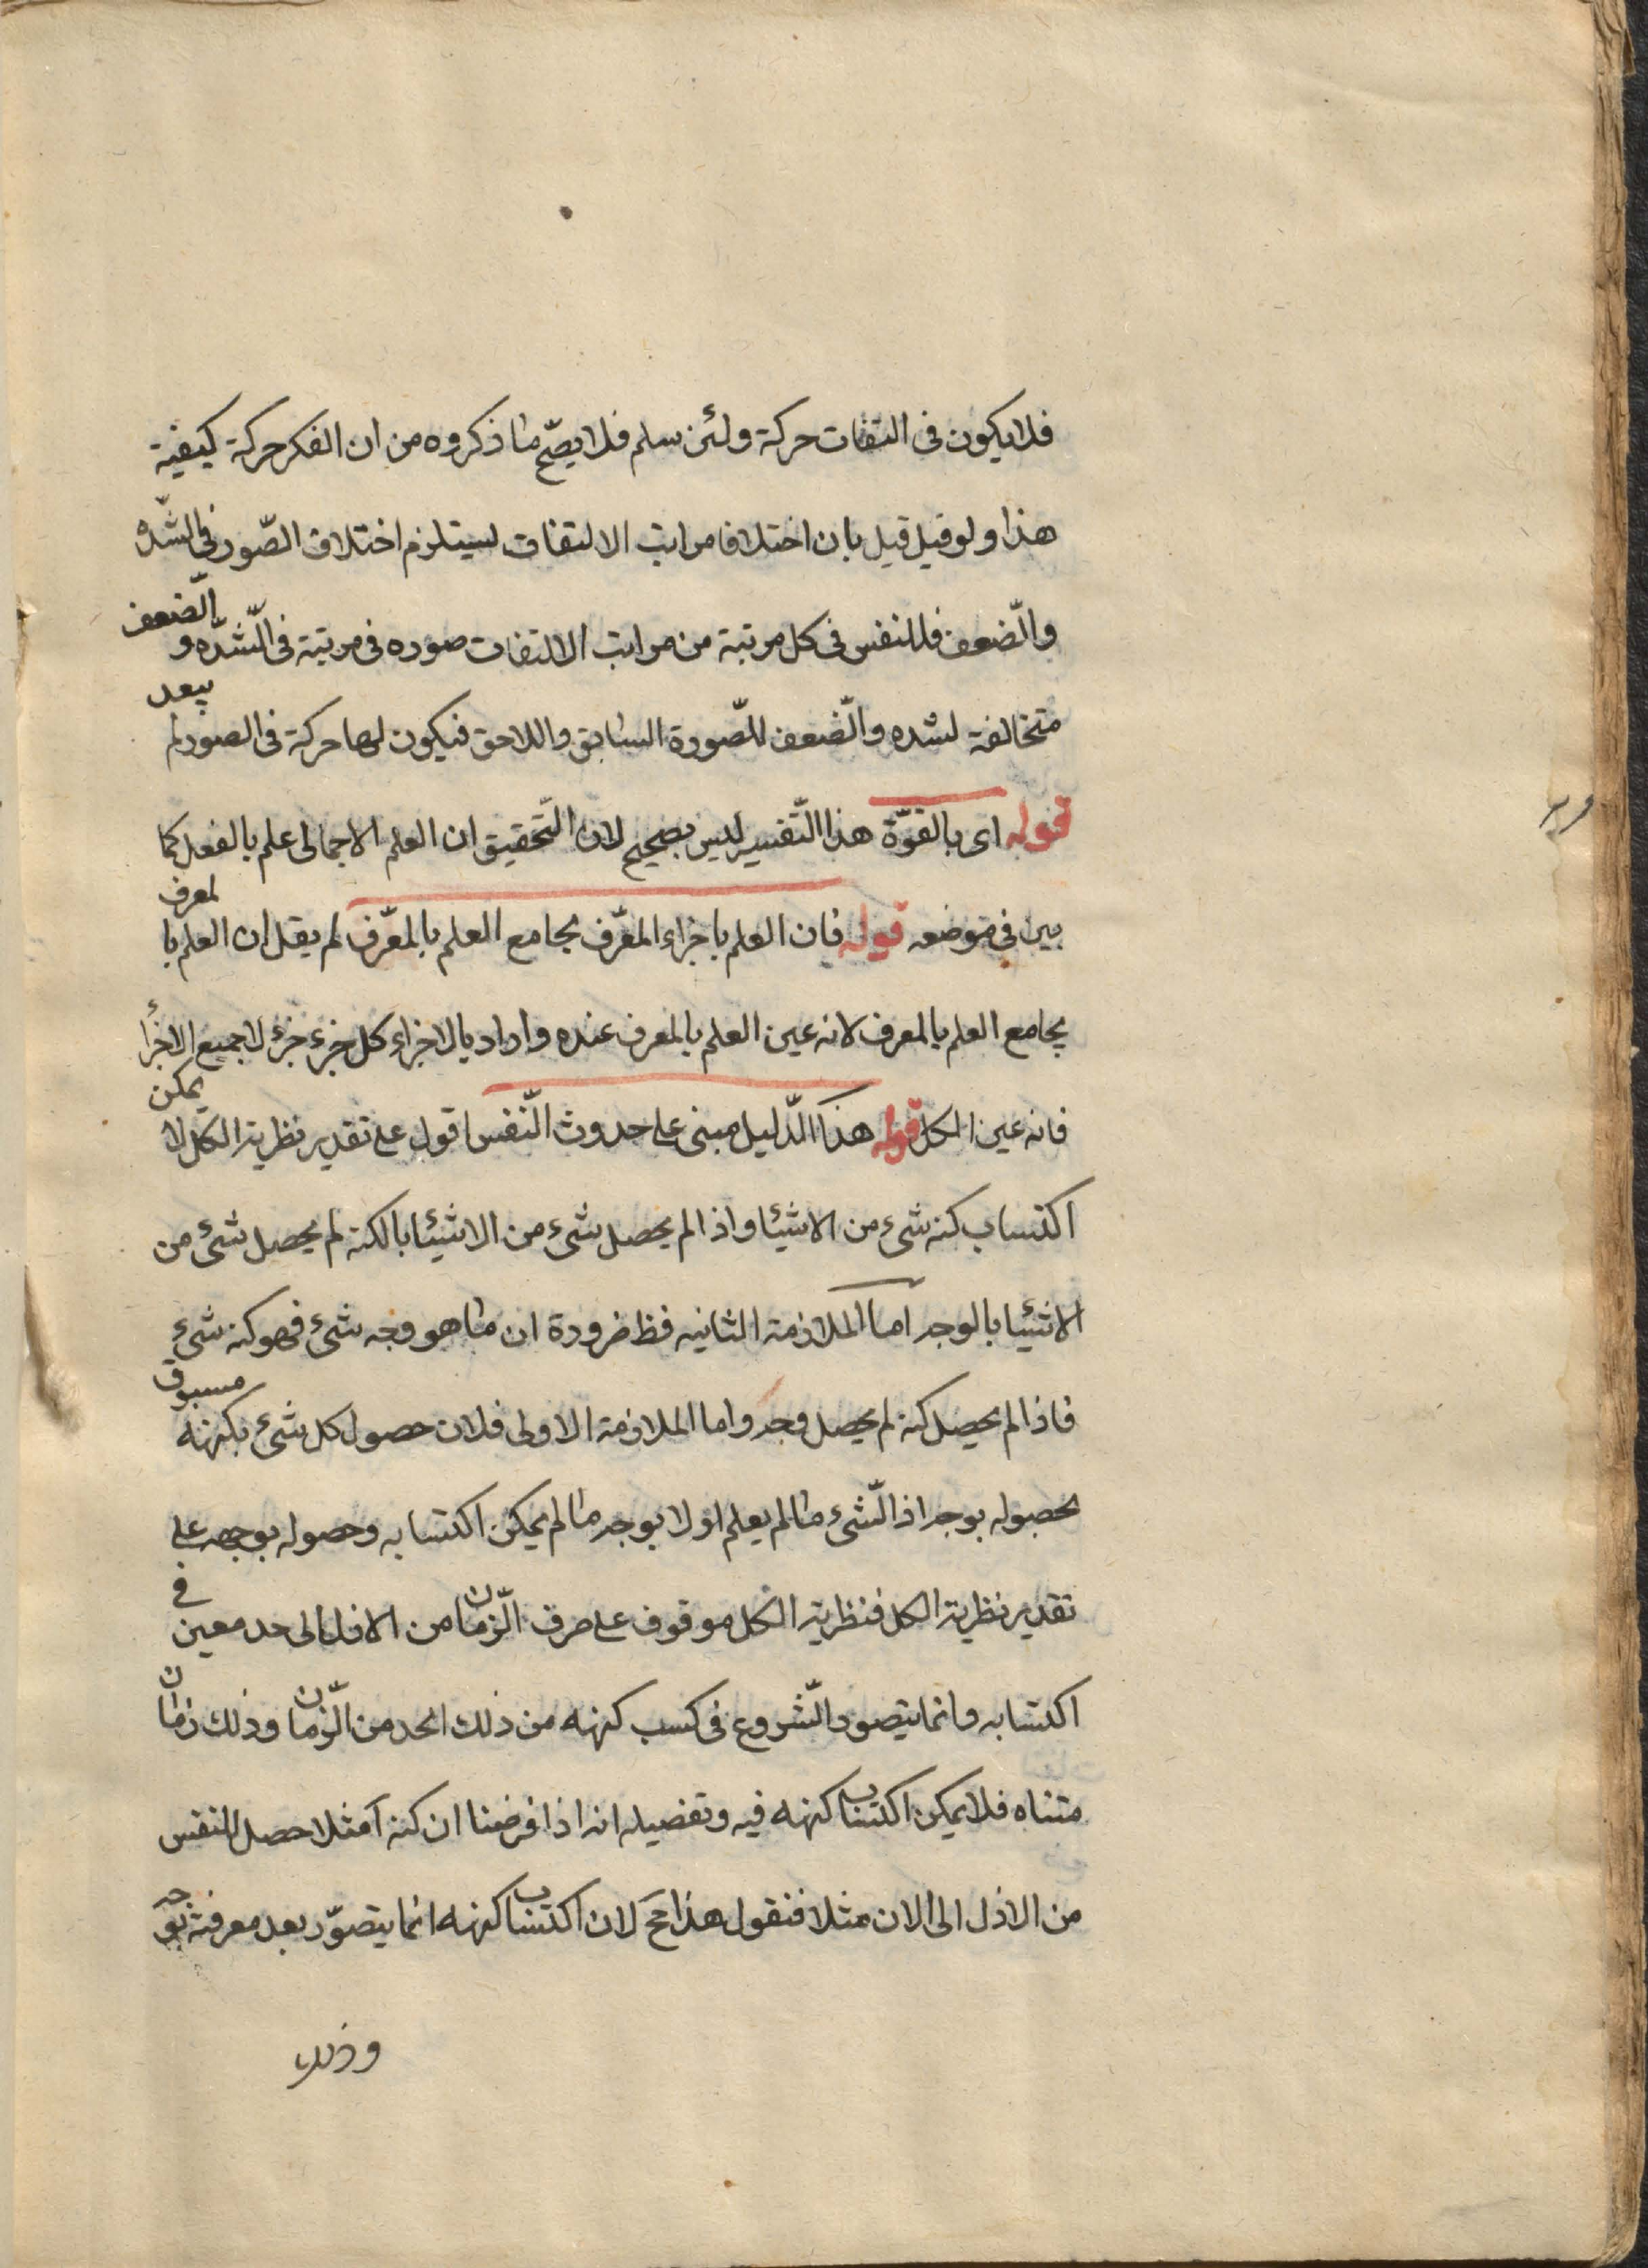 فلا يكون فى التفات حركة ولئن سلم فلا يصحّ ما ذكروه من ان الفكر حركة كيفية
هذا ولو قيل قيل بان اختلاف مراتب الالتفات يستلزم اختلاف الصّور فى الشّده
والضّعف فللنفس فى كل مرتبة من مراتب الالتفات صوره فى مرتبة فى الشّده و الضعف
متخالفة لشده والضّعف للصّورة السابق واللاحق فيكون لها حركة فى الصور لم يبعد
قوله اى بالقوّة هذا التّفسير ليس بصحيح لان التّحقيق ان العلم الاجمالى علم بالفعل كما
بين فى موضعه قوله فان العلم باجزاء المعّرف يجامع العلم بالمعّرف لم يقل ان العلم با لمعرف
يجامع العلم بالمعرف لانه عين العلم بالمعرف عنده واراد بالاجزاء كل جزء جزء لا جميع الاجزاء
فانه عين الكل قوله هذا الدّليل مبنى على حدوث النّفس اقول على تقدير نظرية الكل لا يمكن
اكتساب كنه شىء من الاشيئا واذا لم يحصل شىء من الاشيئا بالكنه لم يحصل شىء من
الاشيئا بالوجه اما الملازمة الثانيه فظ ضرورة ان ما هو وجه شىء فهو كنه شىء
فاذا لم يحصل كنه لم يحصل وجه واما الملازمة الاولى فلان حصول كل شىء بكنهه مسبوق
بحصوله بوجه اذ الشّىء ما لم يعلم اولا بوجه ما لم يمكن اكتسابه وحصوله بوجهه على
تقدير نظرية الكل فنظرية الكل موقوف على صرف الزّمان من الازل الى حد معين فى
اكتسابه وانما يتصور الشّروع فى كسب كنهه من ذلك الحد من الزّمان وذلك زمان
متناه فلا يمكن اكتساب كنهه فيه وتفصيله انه اذا فرضنا ان كنه آ مثلا حصل للنفس
من الازل الى الان مثلا فنقول هذا مح لان اكتساب كنهه انما يتصوّر بعد معرفته بوجه
وذلك